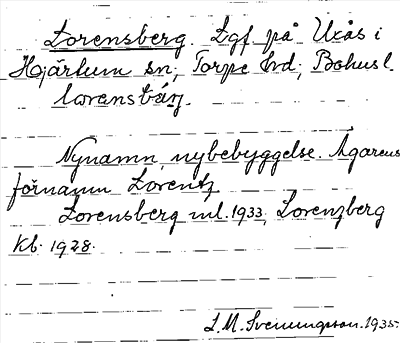 Lorensberg. Lgf på Uxås i
Hjärtum sn, Torpe hd, Bohusl.
Nynamn, nybebyggelse. Ägarens
förnamn Lorentz
Lorensberg ml. 1933, Lorenzberg
kb. 1928.
L. M. Svenungsson. 1935.